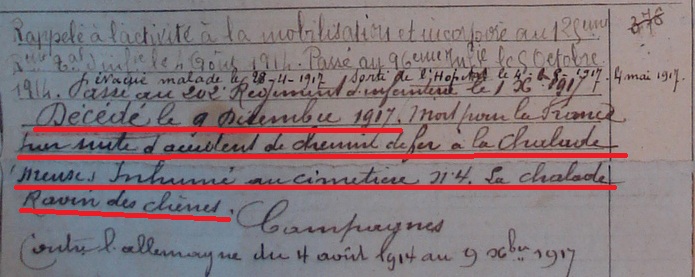 Rappelé à l'activité à la mobilisation et incorporé au 125eme 376
le 4 Août 1914. Passé au 96eme le 5 Octobre
Evacué malade le 28-4-1917 sorti de l'Hopital le 1917. 4 mai 1917.
1914. Passé au 202e Régiment d'infanterie le 1 Xbre 1917
Décédé le 9 Décembre 1917. Mort pour la France
par suite d'accident de chemin de fer à la Chalade
Meuse. Inhumé au cimetière N°4. La chalade
Ravin des chênes.
Campagnes
Contre l'allemagne du 4 août 1914 au 9 Xbre 1917